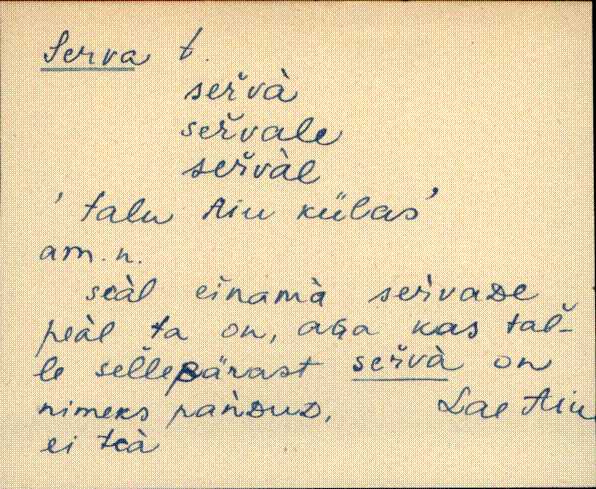 Serva t.
seřvà
seřvale
seřvàl
'talu Aiu külas'
am. n.
seàl einamà seřvaDe
peàl ta on, aGa kas tal̆-
le sel̆lepärast seřvà on
nimeks pańDuD, Lae Aiu
ei teà